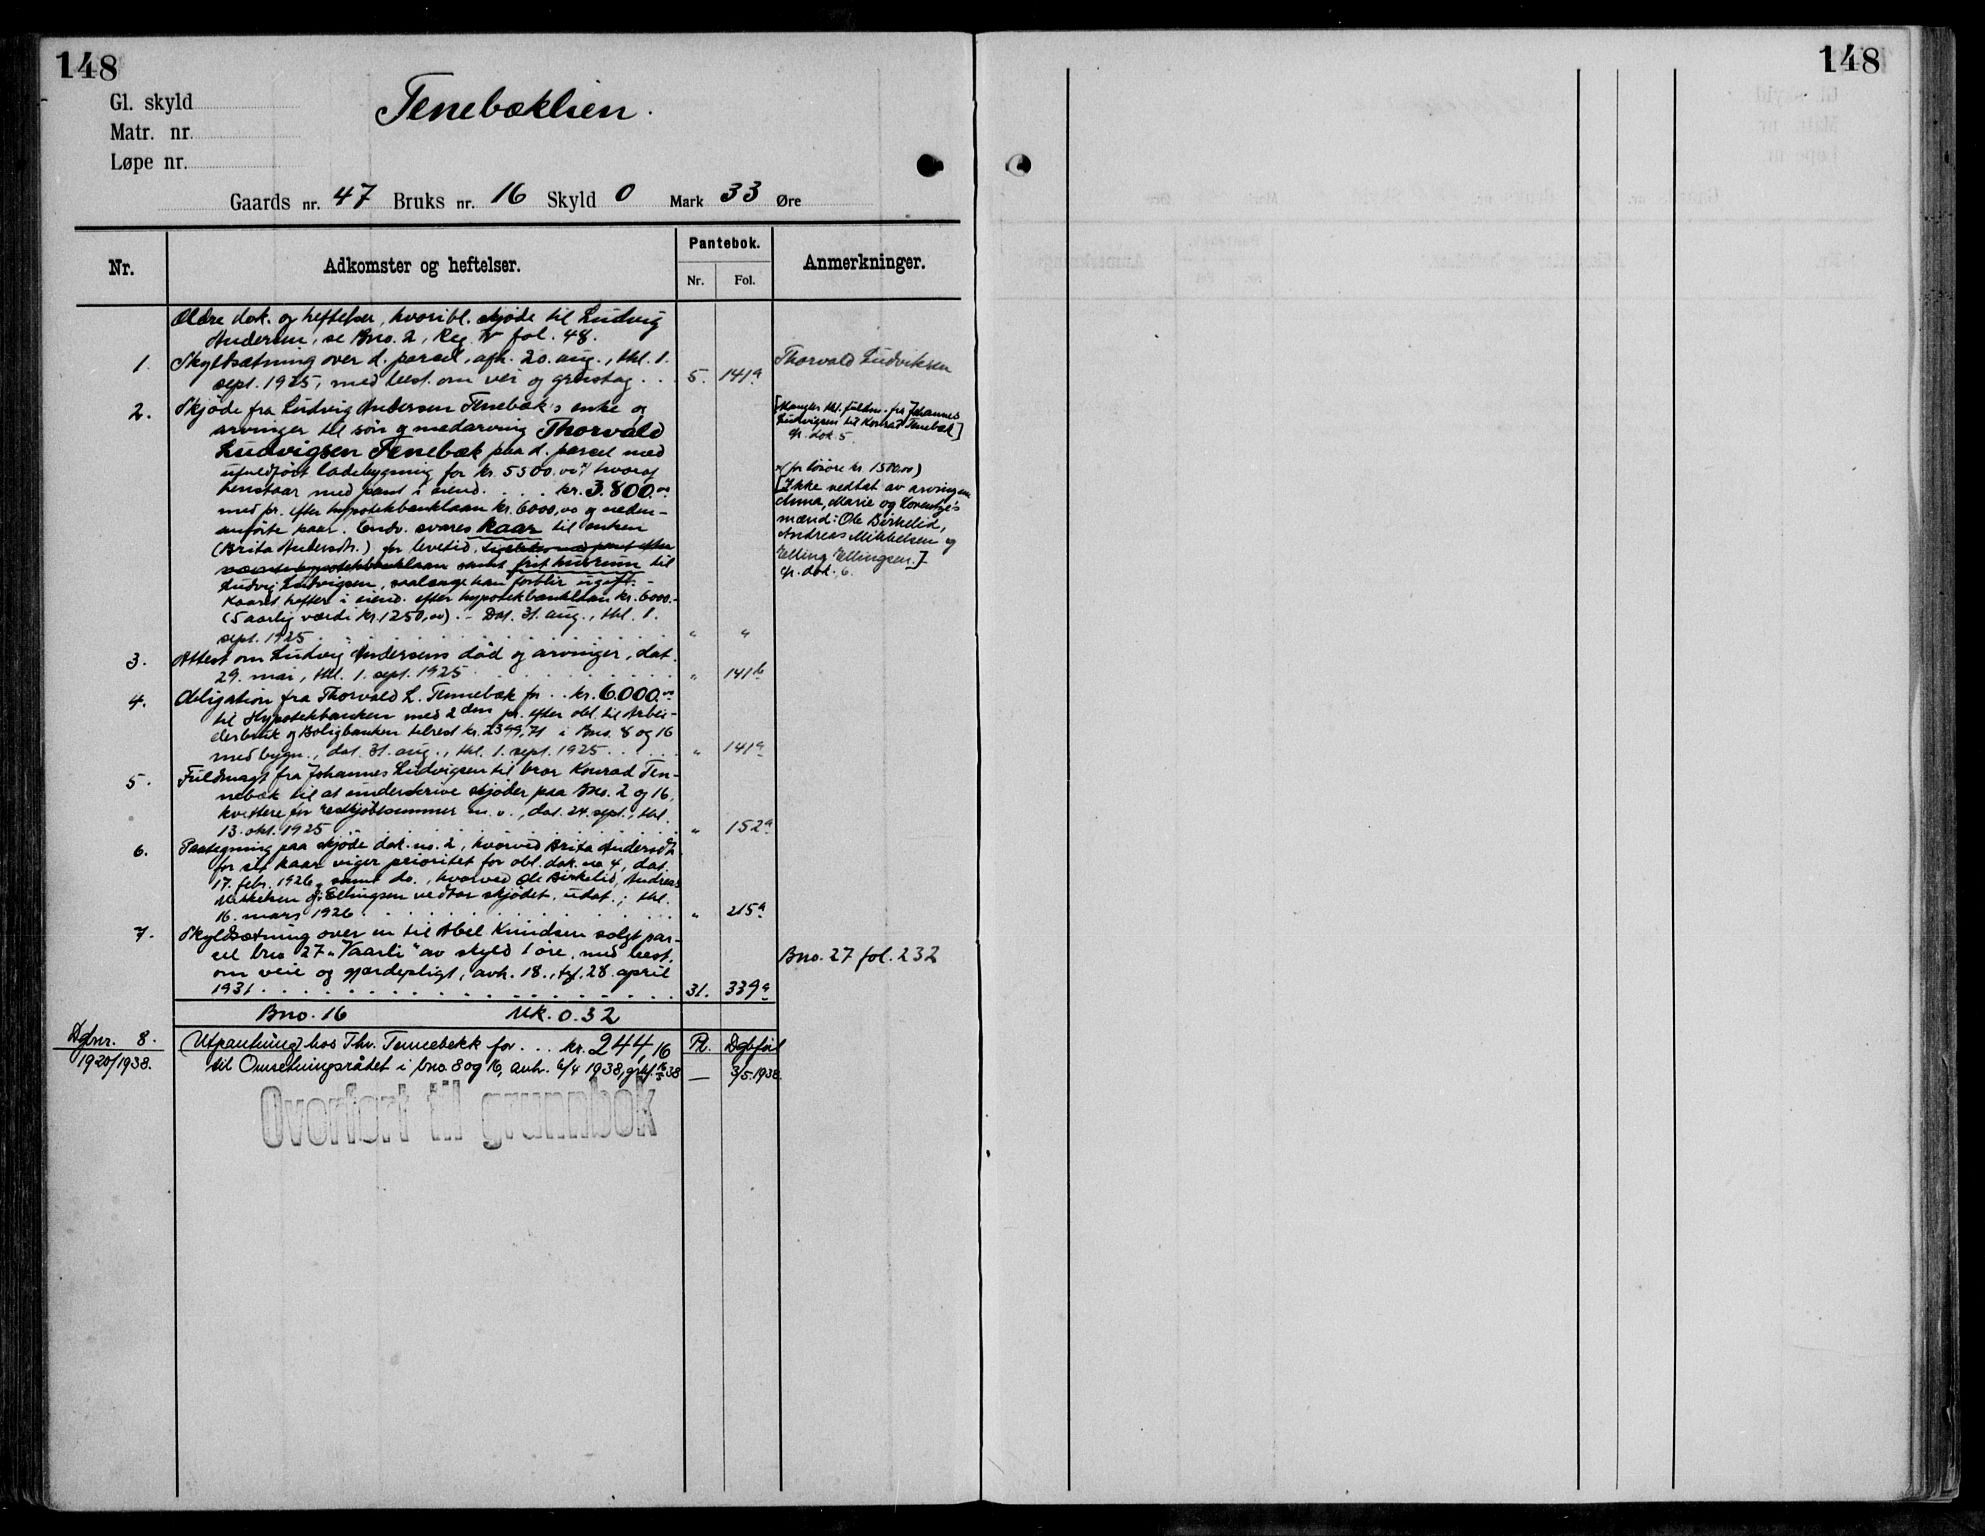 148
148
Gl. skyld
Tenebæklien.
Matr. nr.
Løpe nr.
Gaards nr. 47 Bruks nr. 16 Skyld 0 Mark 33 Øre
Nr.
Adkomster og heftelser.
Pantebok.
Nr.
Fol.
Anmerkninger.
Ældre dok. og heftelser, hvoribl. skjøde til Ludvig
Andersen, se Bno. 2, Reg. IV fol. 48.
1. Skyldsætning over d. parsel, afh. 20. aug., thl. 1.
sept. 1925, med best. om vei og grustag . . . 5. 141a
Thorvald Ludviksen
2. Skjøde fra Ludvig Andersen Tenebæk's enke og
arvinger til søn og medarving Thorvald
Ludvigsen Tenebæk paa d. parsel med
ufuldført ladebygning for kr. 5500.00 x) hvorav
henstaar med pant i eiend. . . . . kr. 3.800.00
med pr. efter hypotekbanklaan kr. 6000,00 og neden-
anførte kaar. Endv. svares kaar til enken
(Brita Andersdtr.) for levetid,
samt frit husrum til
Ludvig Ludvigsen, saalænge han forblir ugift. -
Kaaret hefter i eiend. efter hypotekbanklaan kr. 6000.-
(5 aarlig værdi kr. 1250,00). - Dat. 31. aug., thl. 1.
sept. 1925 . . . " "
[Mangler thl. fuldm. fra Johannes
Ludvigsen til Konrad Tenebæk]
cfr. dok. 5.
x (for løsøre kr. 1500,00)
[Ikke vedtat av arvingene
Anna, Marie og Lorentze's
mænd: Ole Birkelid,
Andreas Mikkelsen og
Elling Ellingsen.]
cfr. dok. 6.
3. Attest om Ludvig Andersens død og arvinger, dat.
29. mai, thl. 1. sept. 1925 . . . " 141b
4. Obligation fra Thorvald L. Tennebæk for . . kr. 6.000.00
til Hypotekbanken med 2den pr. efter obl. til Arbei-
derbruk og Boligbanken tilrest kr. 2399,71 i Bno. 8 og 16
med bygn., dat. 31. aug., thl. 1. sept. 1925 . . . " 141a
5. Fuldmagt fra Johannes Ludvigsen til bror Konrad Ten-
nebæk til at underskrive skjøder paa Bno. 2 og 16,
kvittere for restkjøbesummer m. v., dat. 24. sept., thl.
13. okt. 1925 . . . " 152a
6. Paategning paa skjøde dok. no. 2, hvorved Brita Andersdtr.
for sit kaar viger prioritet for obl. dok. no 4, dat.
17. febr. 1926, samt do., hvorved Ole Birkelid, Andreas
Mikkelsen og E. Ellingsen vedtar skjødet, udat.; thl.
16. mars 1926 . . . " 215a
7. Skyldsætning over en til Abel Knudsen solgt par-
sel bno 27 "Vaarli" av skyld 1 øre, med best.
om veie og gjærdepligt, avh. 18., tgl. 28. april
1931 . . . 31. 339a
Bno. 27 fol. 232
Bno. 16 Mk. 0.32
Dgbnr. 8.
1920/1938.
Utpantning hos Thv. Tennebekk for . . . kr. 244,16 Pt. Dgbfol
til Omsetningsrådet i bno. 8 og 16, avh. 6/4 1938, — 3/5.1938.
Overført til grunnbok